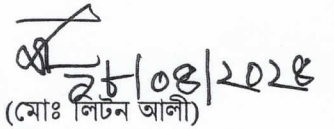 ২৮|০৪|২০২৪
(মোঃ লিটন আলী)